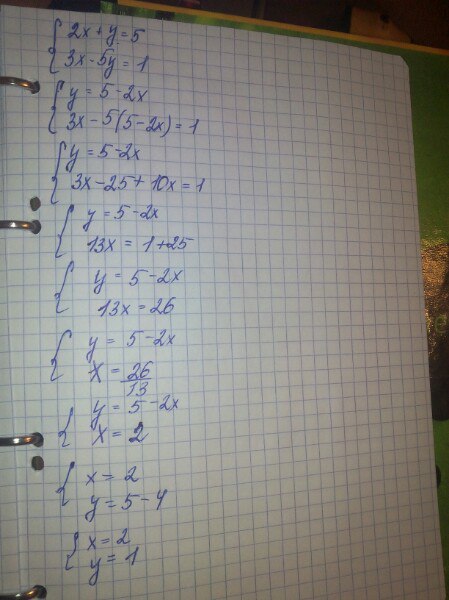 2x + y = 5
3x - 5y = 1
y = 5 - 2x
3x - 5(5 - 2x) = 1
y = 5 - 2x
3x - 25 + 10x = 1
y = 5 - 2x
13x = 1 + 25
y = 5 - 2x
13x = 26
y = 5 - 2x
x = 26/13
y = 5 - 2x
x = 2
x = 2
y = 5 - 4
x = 2
y = 1